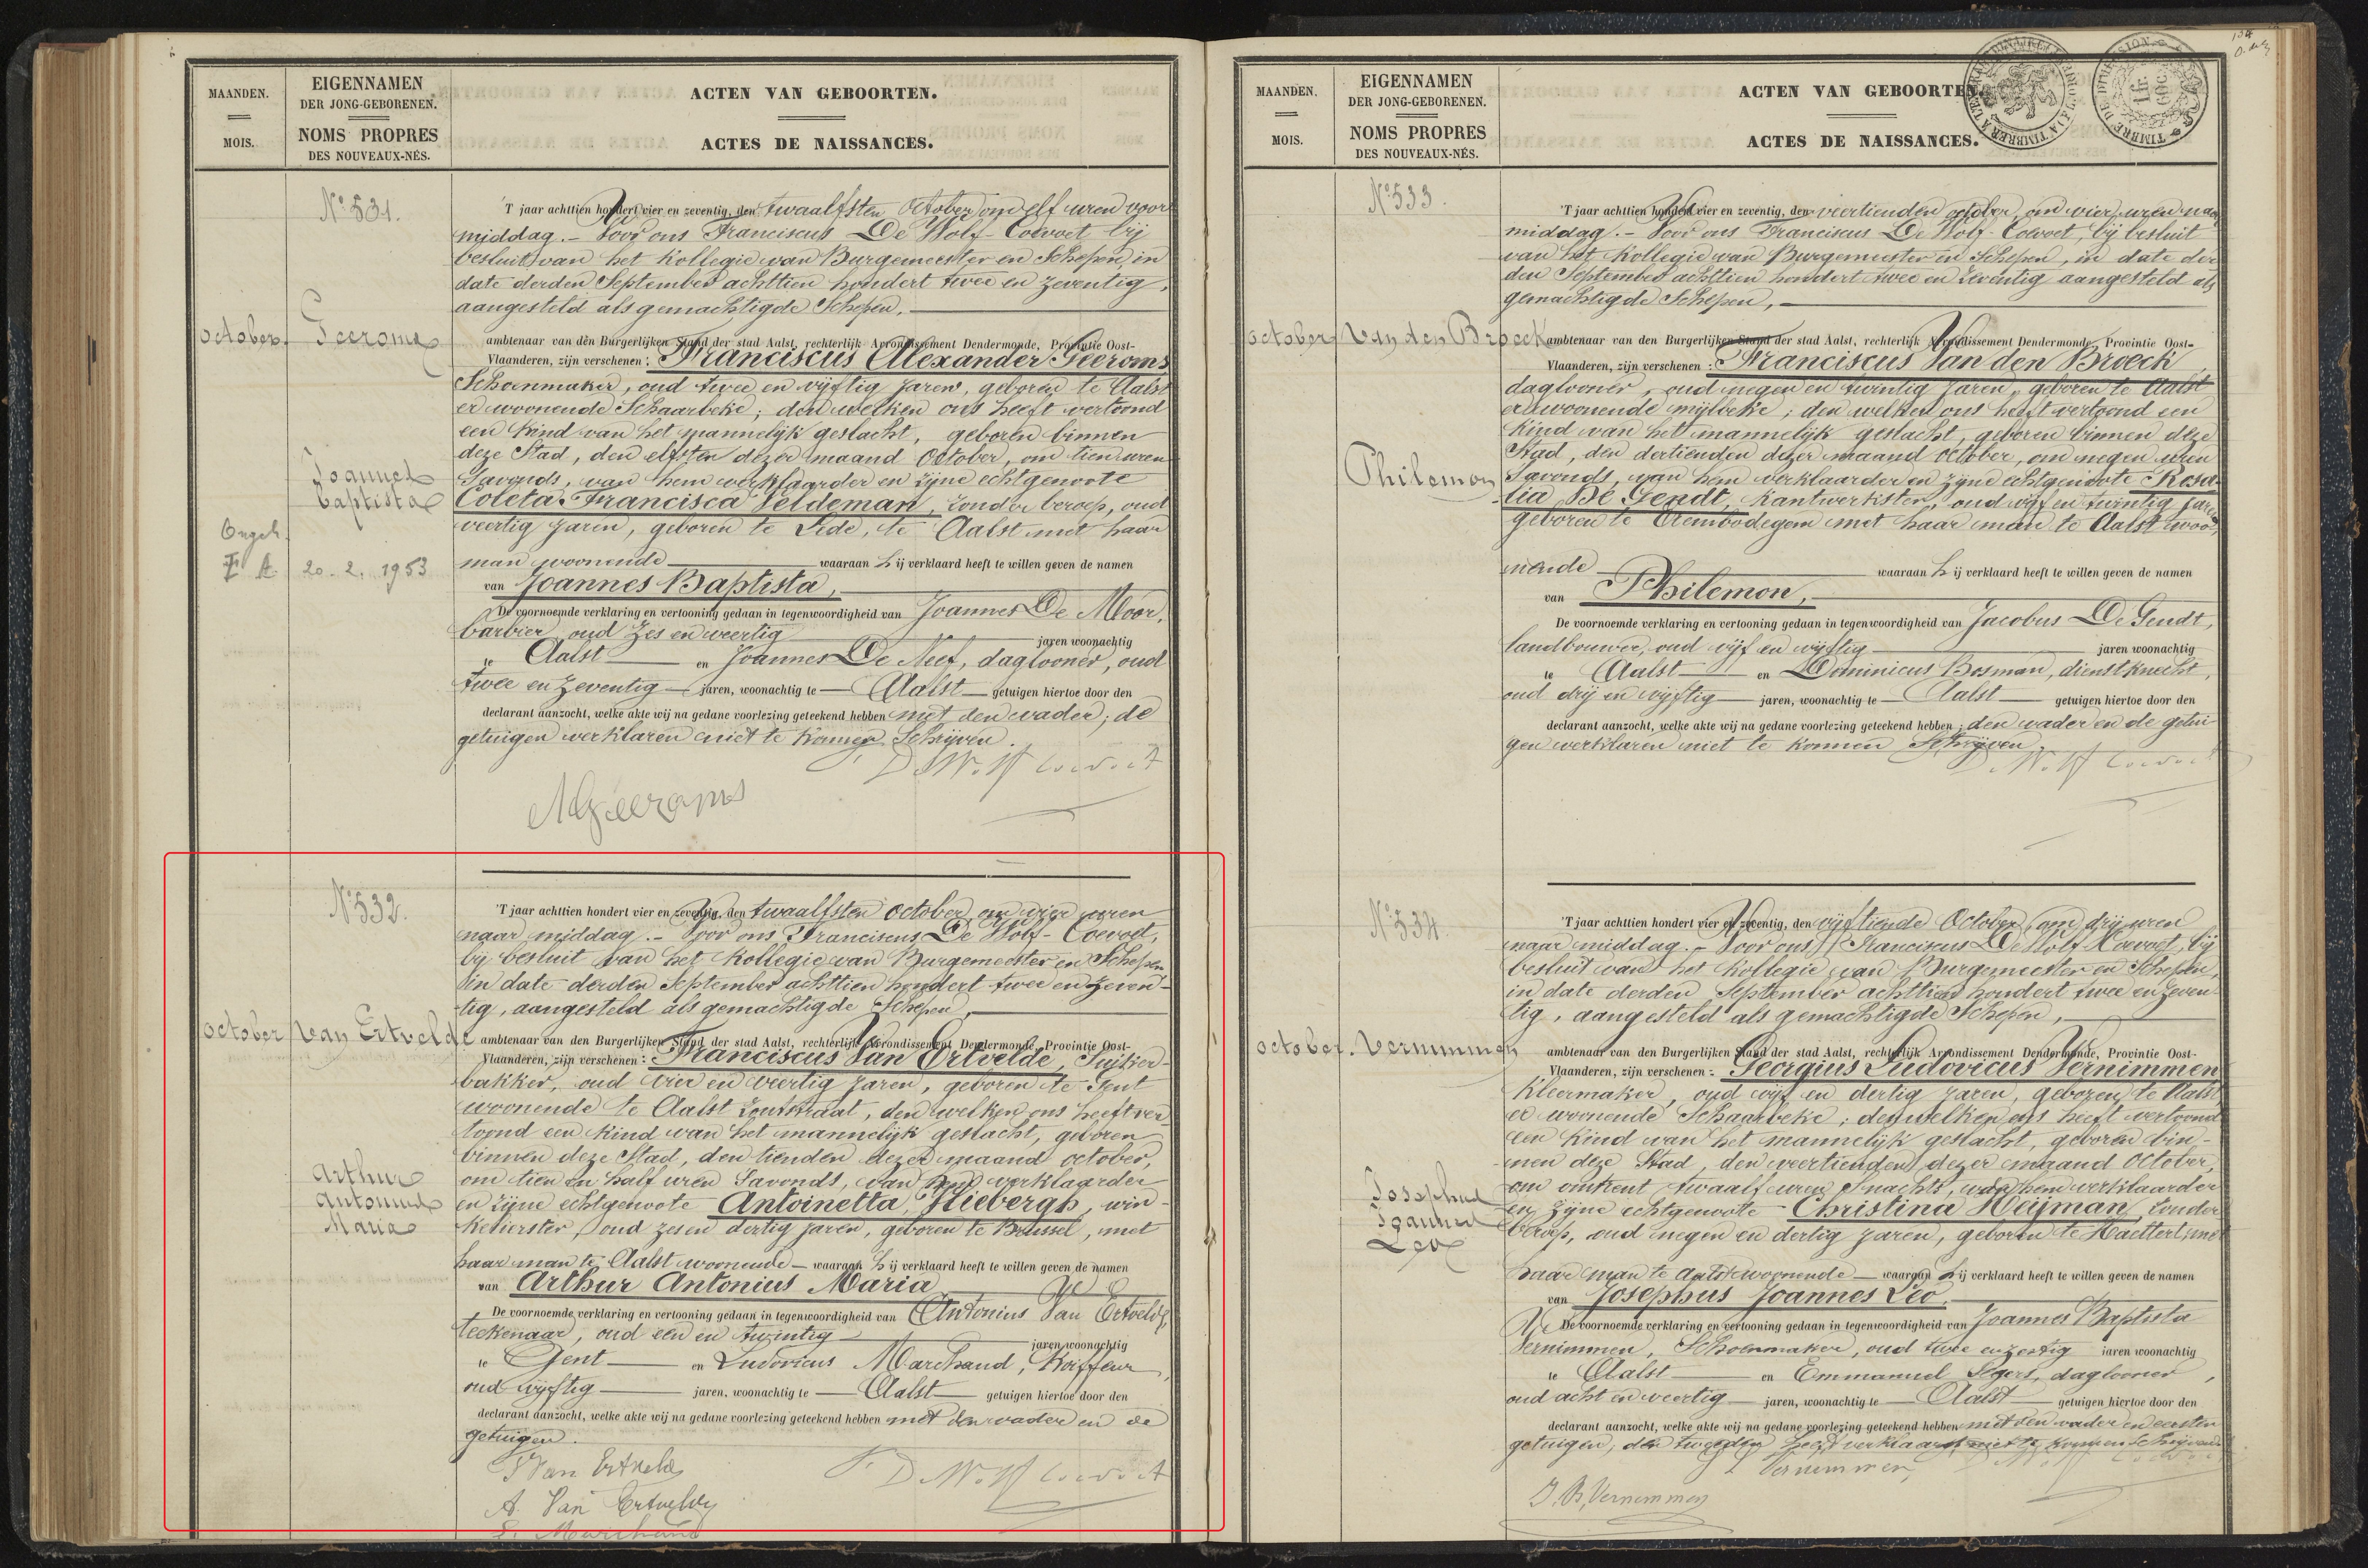 MAANDEN.
MOIS.
EIGENNAMEN
DER JONG-GEBORENEN.
NOMS PROPRES
DES NOUVEAUX-NÉS.
ACTEN VAN GEBOORTEN.
ACTES DE NAISSANCES.
N° 531.
October.
Geeroms
Joannes
Baptista
20. 2. 1953
'T jaar achttien hondert vier en zeventig, den twaalfsten October om elf uren voor
middag. – Voor ons Franciscus De Wolf-Coevoet bij
besluit van het Kollegie van Burgemeester en Schepen, in
date derden September achttien hondert twee en zeventig,
aangesteld als gemachtigde Schepen,
ambtenaar van den Burgerlijken Stand der stad Aalst, rechterlijk Arrondissement Dendermonde, Provintie Oost-
Vlaanderen, zijn verschenen: Franciscus Alexander Geeroms
Schoenmaker, oud twee en vijftig jaren, geboren te Aalst
er woonende Schaarbeke; den welken ons heeft vertoond
een kind van het mannelijk geslacht, geboren binnen
deze Stad, den elfsten dezer maand October, om tien uren
Savonds, van hem verklaarder en zijne echtgenoote
Coleta Francisca Veldeman, zonder beroep, oud
veertig jaren, geboren te Lede, te Aalst met haar
man woonende waaraan hij verklaard heeft te willen geven de namen
van Joannes Baptista,
De voornoemde verklaring en vertooning gedaan in tegenwoordigheid van Joannes De Moor,
barbier, oud zes en veertig jaren woonachtig
te Aalst en Joannes De Neef, daglooner, oud
twee en zeventig jaren, woonachtig te Aalst getuigen hiertoe door den
declarant aanzocht, welke akte wij na gedane voorlezing geteekend hebben met den vader; de
getuigen verklaren niet te konnen Schrijven.
De Wolf Coevoet
AGeeroms
N° 532.
October
Van Ertvelde
Arthur
Antonius
Maria
'T jaar achttien hondert vier en zeventig, den twaalfsten October om vier uren
naar middag. – Voor ons Franciscus De Wolf-Coevoet,
bij besluit van het Kollegie van Burgemeester en Schepen
in date derden September achttien hondert twee en zeven-
tig, aangesteld als gemachtigde Schepen,
ambtenaar van den Burgerlijken Stand der stad Aalst, rechterlijk Arrondissement Dendermonde, Provintie Oost-
Vlaanderen, zijn verschenen: Franciscus Van Ertvelde, Suijker-
bakker, oud vier en veertig jaren, geboren te Gent
woonende te Aalst Zoutstraat, den welken ons heeft ver
toond een kind van het mannelijk geslacht, geboren
binnen deze Stad, den tienden dezer maand october,
om tien en half uren Savonds, van hem verklaarder
en zijne echtgenoote Antoinetta Stiebergh, win-
kelierster, oud zes en dertig jaren, geboren te Brussel, met
haar man te Aalst woonende waaraan hij verklaard heeft te willen geven de namen
van Arthur Antonius Maria
De voornoemde verklaring en vertooning gedaan in tegenwoordigheid van Antonius Van Ertvelde,
teekenaar, oud een en twintig jaren woonachtig
te Gent en Ludovicus Marchand, Koiffeur,
oud vijftig jaren, woonachtig te Aalst getuigen hiertoe door den
declarant aanzocht, welke akte wij na gedane voorlezing geteekend hebben met den vader en de
getuigen.
F Van Ertvelde
De Wolf Coevoet
A. Van Ertvelde
L. Marchand
MAANDEN.
MOIS.
EIGENNAMEN
DER JONG-GEBORENEN.
NOMS PROPRES
DES NOUVEAUX-NÉS.
ACTEN VAN GEBOORTEN.
ACTES DE NAISSANCES.
N° 533.
October
Van den Broeck
Philemon
'T jaar achttien hondert vier en zeventig, den veertienden october, om vier uren naar
middag. – Voor ons Franciscus De Wolf-Coevoet, bij besluit
van het Kollegie van Burgemeester en Schepen, in date der
den September achttien hondert twee en zeventig aangesteld als
gemachtigde Schepen,
ambtenaar van den Burgerlijken Stand der stad Aalst, rechterlijk Arrondissement Dendermonde, Provintie Oost-
Vlaanderen, zijn verschenen: Franciscus Van den Broeck
daglooner, oud negen en twintig jaren, geboren te Aalst
er woonende mijlbeke; den welken ons heeft vertoond een
kind van het mannelijk geslacht, geboren binnen deze
Stad, den dertienden dezer maand October, om negen uren
Savonds, van hem verklaarder en zijne echtgenoote Rosa-
lia De Gendt, Kantwerkster, oud vijf en twintig jaren
geboren te Erembodegem met haar man te Aalst woo-
nende waaraan hij verklaard heeft te willen geven de namen
van Philemon,
De voornoemde verklaring en vertooning gedaan in tegenwoordigheid van Jacobus De Gendt,
landbouwer, oud vijf en vijftig jaren woonachtig
te Aalst en Dominicus Bosman, dienstknecht,
oud drij en vijftig jaren, woonachtig te Aalst getuigen hiertoe door den
declarant aanzocht, welke akte wij na gedane voorlezing geteekend hebben; den vader en de getui-
gen verklaren niet te konnen Schrijven.
De Wolf Coevoet
N° 534.
October.
Vernimmen
Josephus
Joannes
Leo
'T jaar achttien hondert vier en zeventig, den vijftiende October, om drij uren
naar middag. – Voor ons Franciscus De Wolf Coevoet, bij
besluit van het Kollegie van Burgemeester en Schepen,
in date derden September achttien hondert twee en zeven
tig, aangesteld als gemachtigde Schepen,
ambtenaar van den Burgerlijken Stand der stad Aalst, rechterlijk Arrondissement Dendermonde, Provintie Oost-
Vlaanderen, zijn verschenen: Georgius Ludovicus Vernimmen
Kleermaker, oud vijf en dertig jaren, geboren te Aalst
er woonende Schaarbeke; den welken ons heeft vertoond
een kind van het mannelijk geslacht, geboren bin-
nen deze Stad, den veertienden dezer maand October,
om omtrent twaalf uren Snachts, van hem verklaarder
en zijne echtgenoote Christina Heijman, zonder
beroep, oud negen en dertig jaren, geboren te Haeltert, met
haar man te Aalst woonende waaraan hij verklaard heeft te willen geven de namen
van Josephus Joannes Leo.
De voornoemde verklaring en vertooning gedaan in tegenwoordigheid van Joannes Baptista
Vernimmen, Schoenmaker, oud twee en zestig jaren woonachtig
te Aalst en Emmanuel Segers, daglooner,
oud acht en veertig jaren, woonachtig te Aalst getuigen hiertoe door den
declarant aanzocht, welke akte wij na gedane voorlezing geteekend hebben met den vader en eersten
getuigen, den tweeden heeft verklaard niet te konnen schrijven.
Vernimmen
J. B. Vernemmen